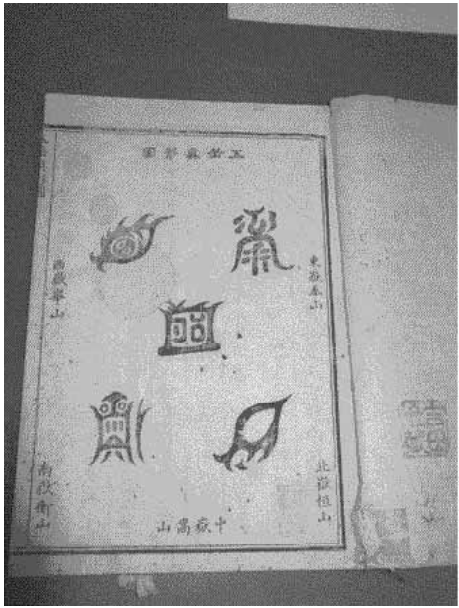 五岳真形圖
東嶽泰山
西嶽華山
北嶽恒山
南嶽衡山
中嶽嵩山